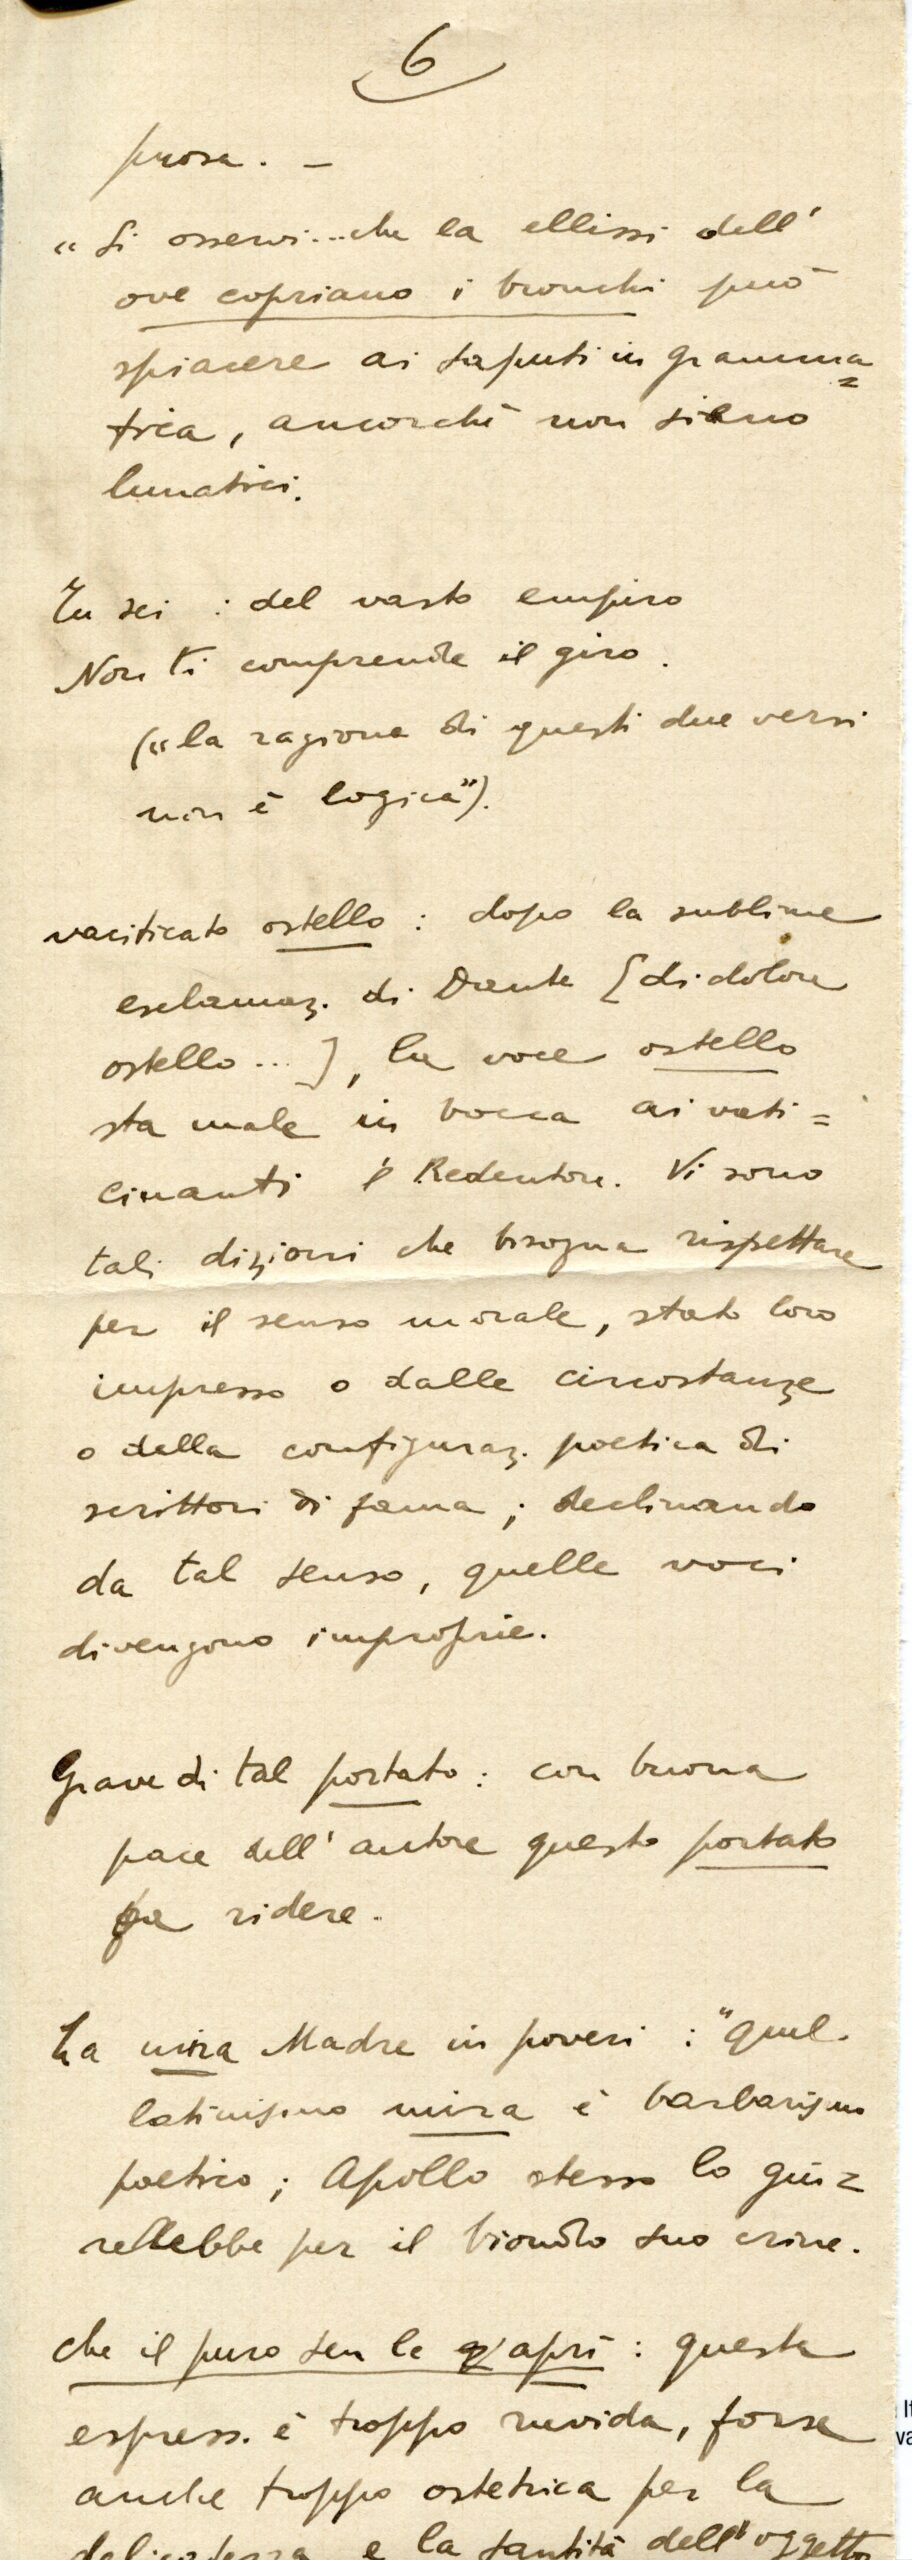 6
prosa. –
« Si osservi... che la ellissi dell'
ove copriano i bronchi può
spiacere ai saputi in gramma=
tica, ancorchè non siano
lunatici.
Tu sei : del vasto empiro
Non ti comprende il giro.
(« la ragione di questi due versi
non è logica").
vaticicato ostello : dopo la sublime
esclamaz. di Dante [di dolore
ostello ... ], la voce ostello
sta male in bocca ai vati=
cinanti il Redentore. Vi sono
tali dizioni che bisogna rispettare
per il senso morale, stato loro
impresso o dalle circostanze
o dalla configuraz. poetica di
scrittori di fama ; declinando
da tal senso, quelle voci
divengono improprie.
Grave di tal portato : con buona
pace dell'autore questo portato
fa ridere.
La mira Madre in poveri : "quel
latinismo mira è barbarismo
poetico ; Apollo stesso lo giu=
rerebbe per il biondo suo crine.
che il puro sen le aprì : questa
espress. è troppo ruvida, forse
anche troppo ostetrica per la
delicatezza e la santità dell'oggetto
It
va